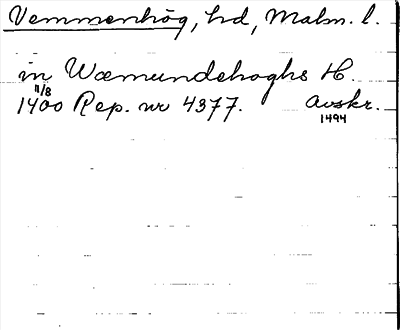 Vemmenhög, hd, Malm. l.
in Wæmundehoghs H.
11/8
1400 Rep. nr 4377. Avskr.
1494